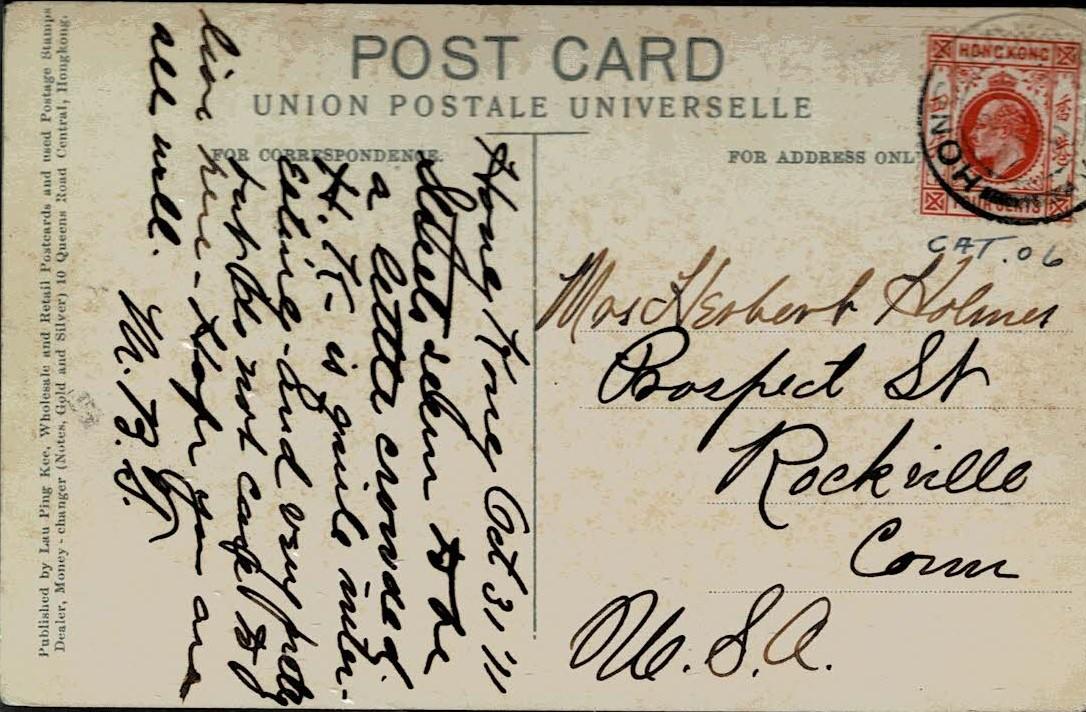 POST CARD
UNION POSTALE UNIVERSELLE
FOR CORRESPONDENCE.
FOR ADDRESS ONLY
HONGKONG
香港
FOUR CENTS
HONG
CAT. 06
Mrs Herbert Holmes
Prospect St
Rockville
Conn
U.S.A.
Hong Kong Oct 31, 11
Streets seem to be
a little crowded.
H. K. is quite inter-
esting and very pretty
but do not care to
live here - Hope you are
all well.
M. B. S.
Published by Lau Ping Kee, Wholesale and Retail Postcards and used Postage Stamps
Dealer, Money-changer (Notes, Gold and Silver) 10 Queens Road Central, Hongkong.